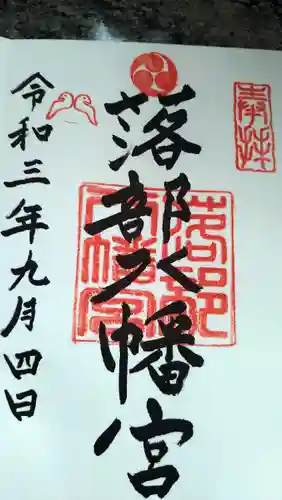 奉拝
落部八幡宮
落部八幡宮
令和三年九月四日